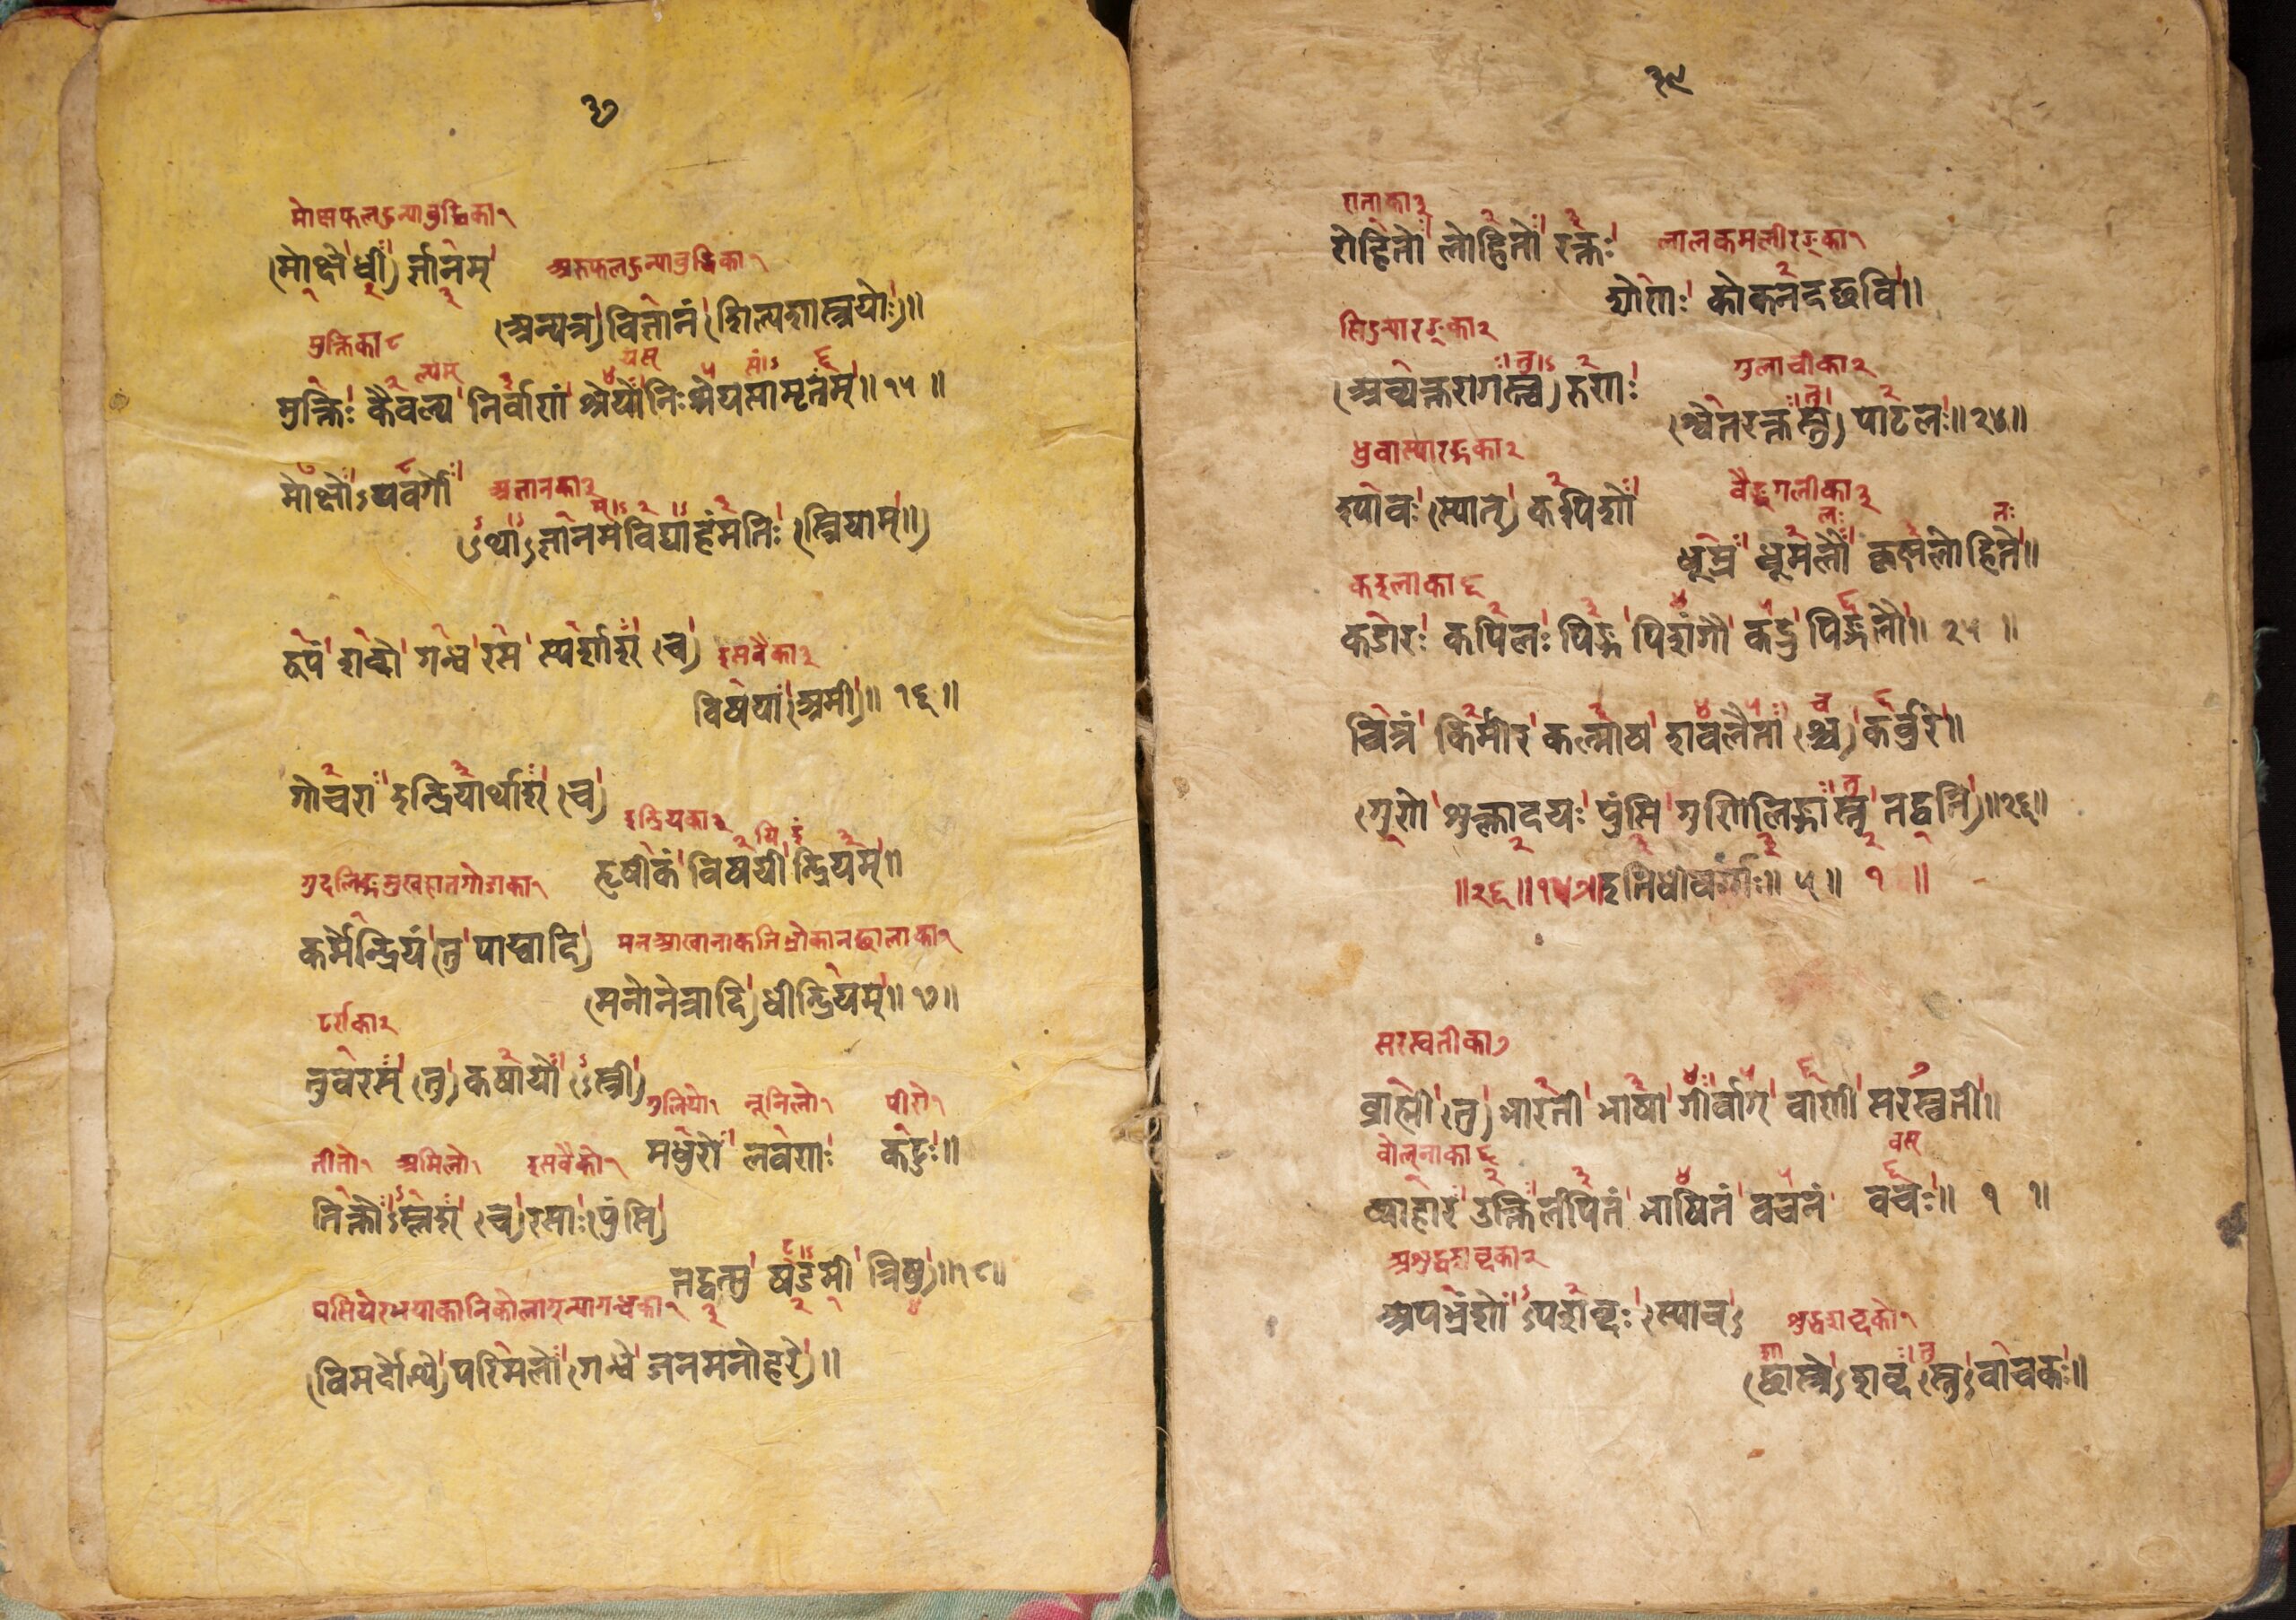 ३७
मोक्षफलहुन्याबुद्धिका१
(मोक्षे धी) र्ज्ञानम्
अरुफलहुन्याबुद्धिका१
(अन्यत्र) विज्ञानं (शिल्पशास्त्रयोः)॥
मुक्तिका८
मुक्तिः कैवल्य निर्वाणं श्रेयो निःश्रेयसामृतम्॥१५॥
मोक्षोऽपवर्गो
अज्ञानका३
(ऽथा)ऽज्ञानमविद्याहंमतिः (स्त्रियाम्॥)
रूपं शब्दो गन्ध रस स्पर्शाश् (च)
विषया (अमी)॥१६॥
गोचरा इन्द्रियार्थाश् (च)
इन्द्रियका३
हृषीकं विषयीन्द्रियम्॥
कर्मेन्द्रियं (तु पाय्वादि)
(मनोनेत्रादि) धीन्द्रियम्॥१७॥
टर्राका२
तुवरस् (तु) कषायो (ऽस्त्री)
गुलियो१ नूनिलो१ पीरो१
मधुरो लवणः कटुः॥
तीतो१ अमिलो१
तिक्तोऽम्लश् (च) रसाः (पुंसि)
तद्वत्सु षडमी त्रिषु)॥१८॥
(विमर्दोत्थे) परिमलो (गन्धे जनमनोहरे)॥
३९
राताका३
रोहितो लोहितो रक्तः
लालकमलीरङ्का१
शोणः कोकनदच्छवि॥
(अव्यक्तरागस्त्व)रुणः
गुलाबीका२
(श्वेतरक्तस्तु) पाटलः॥२४॥
ध्रुवास्यारङ्गका२
श्यावः (स्यात्) कपिशो
वैङ्गलीका३
धूम्र धूमलौ कृष्णलोहिते॥
कइलाका६
कडारः कपिलः पिङ्ग पिशंगौ कद्रु पिङ्गलौ॥२५॥
चित्रं किर्मीर कल्माष शवलैता (श्च) कर्वुरे॥
(गुणे शुक्लादयः पुंसि गुणिलिङ्गास्तु तद्वति)॥२६॥
॥२६॥ इतिधीवर्गः॥५॥ १ ॥
सरस्वतीका७
ब्राह्मी (तु) भारती भाषा गीर्वाग् वाणी सरस्वती॥
बोल्नाका६
व्याहार उक्तिर्लपितं भाषितं वचनं वचः॥ १ ॥
अशुद्धशब्दका२
अपभ्रंशोऽपशब्दः (स्याच्)
शुद्धशब्दको१
(छास्त्रे) शब्द (स्तु) वाचकः॥